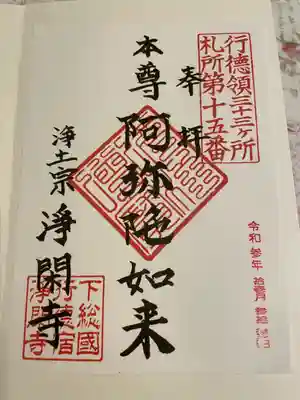 行徳領三十三ヶ所
札所第十五番
奉拝
本尊 阿弥陀如来
浄土宗 浄閑寺
令和参年
下総國
行徳宿
浄閑寺